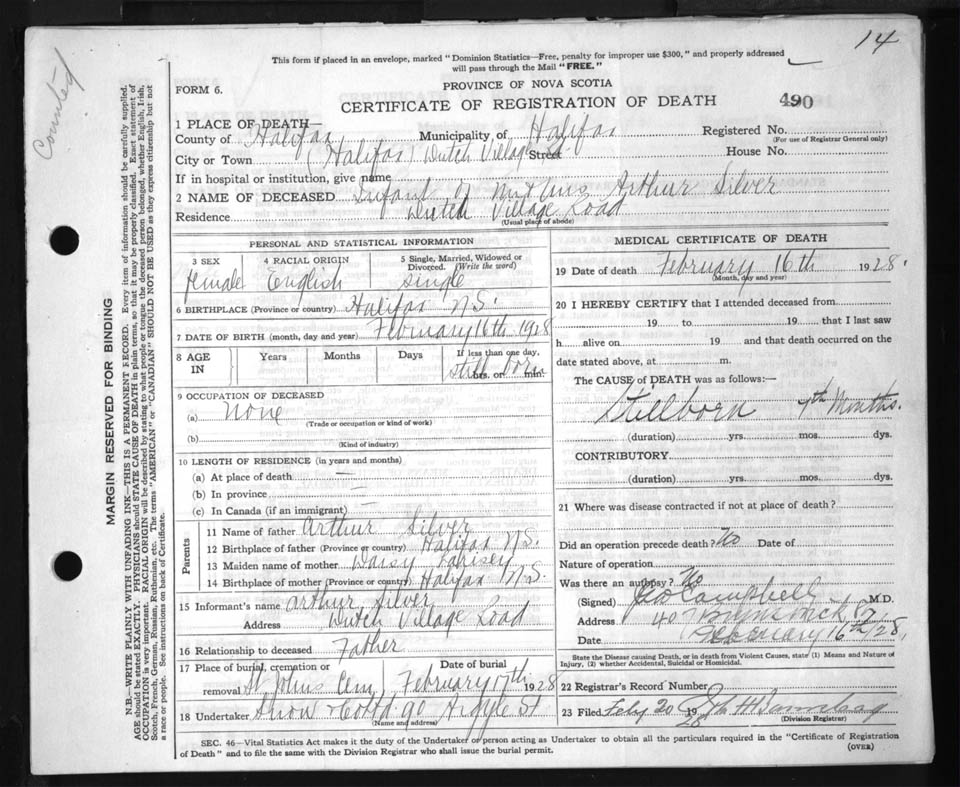 14
Counted
This form if placed in an envelope, marked "Dominion Statistics—Free, penalty for improper use $300," and properly addressed
will pass through the Mail "FREE."
FORM 6.
PROVINCE OF NOVA SCOTIA
CERTIFICATE OF REGISTRATION OF DEATH
490
1 PLACE OF DEATH—
County of Halifax Municipality of Halifax Registered No.
(For use of Registrar General only)
City or Town (Halifax) Dutch Village Street House No.
If in hospital or institution, give name
2 NAME OF DECEASED Infant of Mr & Mrs Arthur Silver
Residence Dutch Village Road
(Usual place of abode)
PERSONAL AND STATISTICAL INFORMATION
3 SEX 4 RACIAL ORIGIN 5 Single, Married, Widowed or Divorced. (Write the word)
Female English Single
6 BIRTHPLACE (Province or country) Halifax N.S.
7 DATE OF BIRTH (month, day and year) February 16th 1928
8 AGE IN Years Months Days If less than one day, hrs. or min.
Still born
9 OCCUPATION OF DECEASED
(a) None
(Trade or occupation or kind of work)
(b)
(Kind of industry)
10 LENGTH OF RESIDENCE (in years and months)
(a) At place of death —
(b) In province —
(c) In Canada (if an immigrant) —
Parents
11 Name of father Arthur Silver
12 Birthplace of father (Province or country) Halifax N.S.
13 Maiden name of mother Daisy
14 Birthplace of mother (Province or country) Halifax N.S.
15 Informant's name Arthur Silver
Address Dutch Village Road
16 Relationship to deceased Father
17 Place of burial, cremation or removal St Johns Cem
Date of burial February 17th 1928
18 Undertaker Snow & Co Ltd 90 Argyle St
(Name and address)
MEDICAL CERTIFICATE OF DEATH
19 Date of death February 16th 1928.
(Month, day and year)
20 I HEREBY CERTIFY that I attended deceased from
19 to 19 that I last saw
h alive on 19 and that death occurred on the
date stated above, at m.
The CAUSE of DEATH was as follows:—
Stillborn 7th Months.
(duration) yrs. mos. dys.
CONTRIBUTORY
(duration) yrs. mos. dys.
21 Where was disease contracted if not at place of death?
Did an operation precede death? No Date of
Nature of operation
Was there an autopsy? No
(Signed) Geo Campbell M.D.
Address 40
Date February 16th/28.
State the Disease causing Death, or in death from Violent Causes, state (1) Means and Nature of
Injury, (2) whether Accidental, Suicidal or Homicidal.
22 Registrar's Record Number
23 Filed Feby 20 1928
(Division Registrar)
SEC. 46—Vital Statistics Act makes it the duty of the Undertaker or person acting as Undertaker to obtain all the particulars required in the "Certificate of Registration
of Death" and to file the same with the Division Registrar who shall issue the burial permit.
(OVER)
MARGIN RESERVED FOR BINDING
N.B.—WRITE PLAINLY WITH UNFADING INK—THIS IS A PERMANENT RECORD. Every item of information should be carefully supplied.
AGE should be stated EXACTLY. PHYSICIANS should STATE CAUSE OF DEATH in plain terms, so that it may be properly classified. Exact statement of
OCCUPATION is very important. RACIAL ORIGIN will be described by stating to what people or tongue the deceased person belonged, whether English, Irish,
Scotch, French, German, Russian, Ruthenian, etc. The terms "AMERICAN" or "CANADIAN" SHOULD NOT BE USED as they express citizenship but not
a race or people. See instructions on back of Certificate.